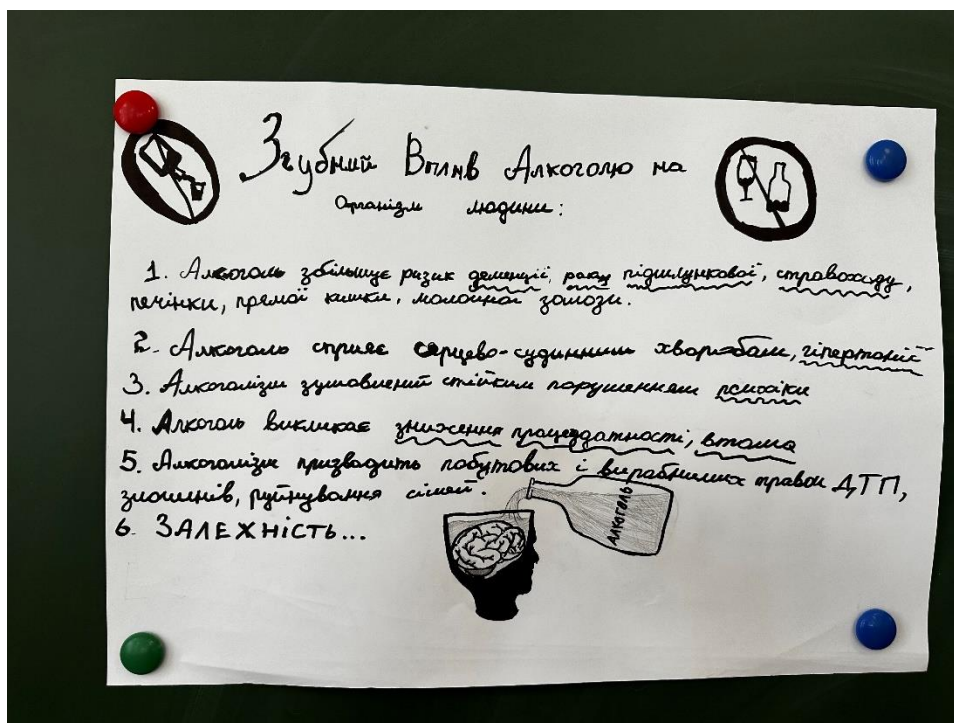 Згубний Вплив Алкоголю на
Організм людини:
1. Алкоголь збільшує ризик деменції, раку підшлункової, стравоходу,
печінки, прямої кишки, молочної залози.
2. Алкоголь сприяє серцево-судинним хворобам, гіпертонії
3. Алкоголізм зумовлений стійким порушенням психіки
4. Алкоголь викликає зниження працездатності, втома
5. Алкоголізм призводить побутових і виробничих травм ДТП,
злочинів, руйнування сімей.
6. ЗАЛЕЖНІСТЬ...
АЛКОГОЛЬ